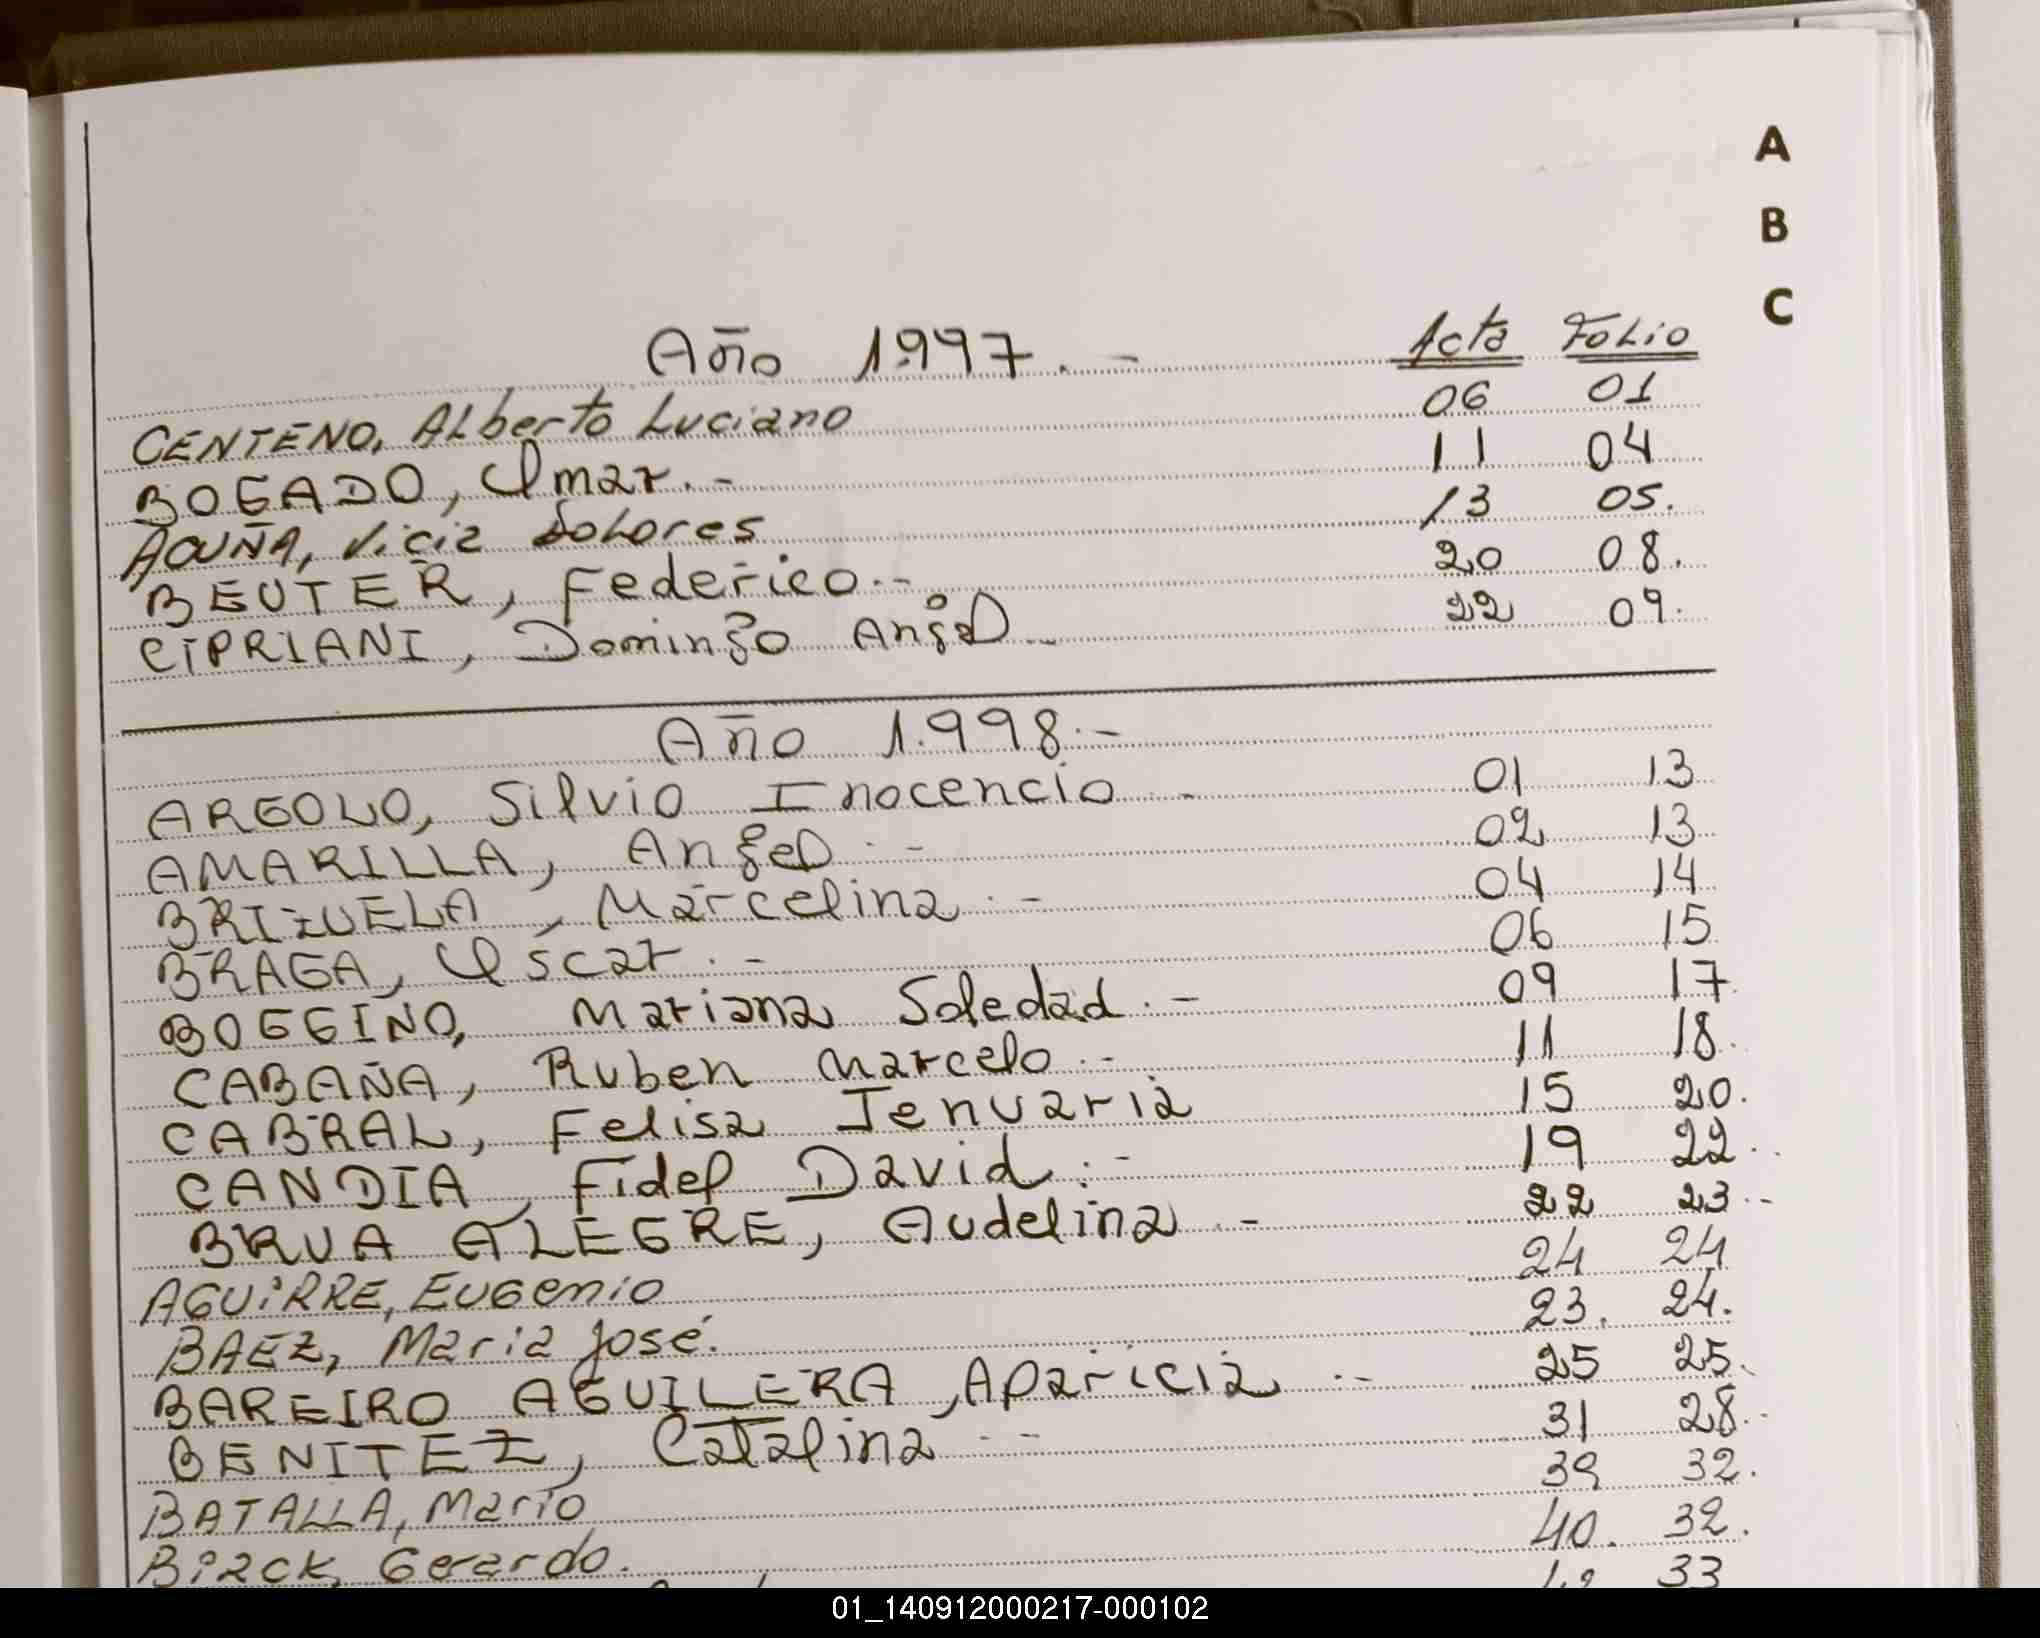 A
B
C
Año 1.997.- Acta Folio
CENTENO, Alberto Luciano 06 01
BOGADO, Omar.- 11 04
ACUÑA, Vicia Dolores 13 05.
BEUTER, Federico.- 20 08.
CIPRIANI, Domingo Angel.- 22 09.
Año 1.998.-
ARGOLO, Silvio Inocencio.- 01 13
AMARILLA, Angel.- 02 13
BRIZUELA, Marcelina.- 04 14
BRAGA, Oscar.- 06 15
BOGGINO, Mariana Soledad.- 09 17
CABAÑA, Ruben Marcelo.- 11 18.
CABRAL, Felisa Jenuaria 15 20.
CANDIA, Fidel David.- 19 22.
BRUA ALEGRE, Audelina.- 22 23.-
AGUIRRE, Eugenio 24 24
BAEZ, Maria José. 23. 24.
BAREIRO AGUILERA, Aparicia.- 25 25.
BENITEZ, Catalina.- 31 28.-
BATALLA, Mario 39 32.
Biack, Gerardo. 40. 32.
33
01_140912000217-000102